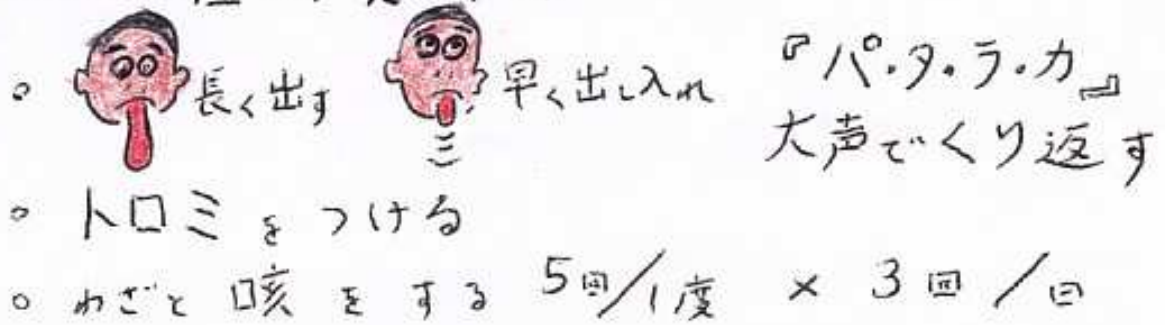 長く出す 早く出し入れ 『パ・タ・ラ・カ』
大声でくり返す
トロミをつける
わざと咳をする 5回/1度 × 3回/日